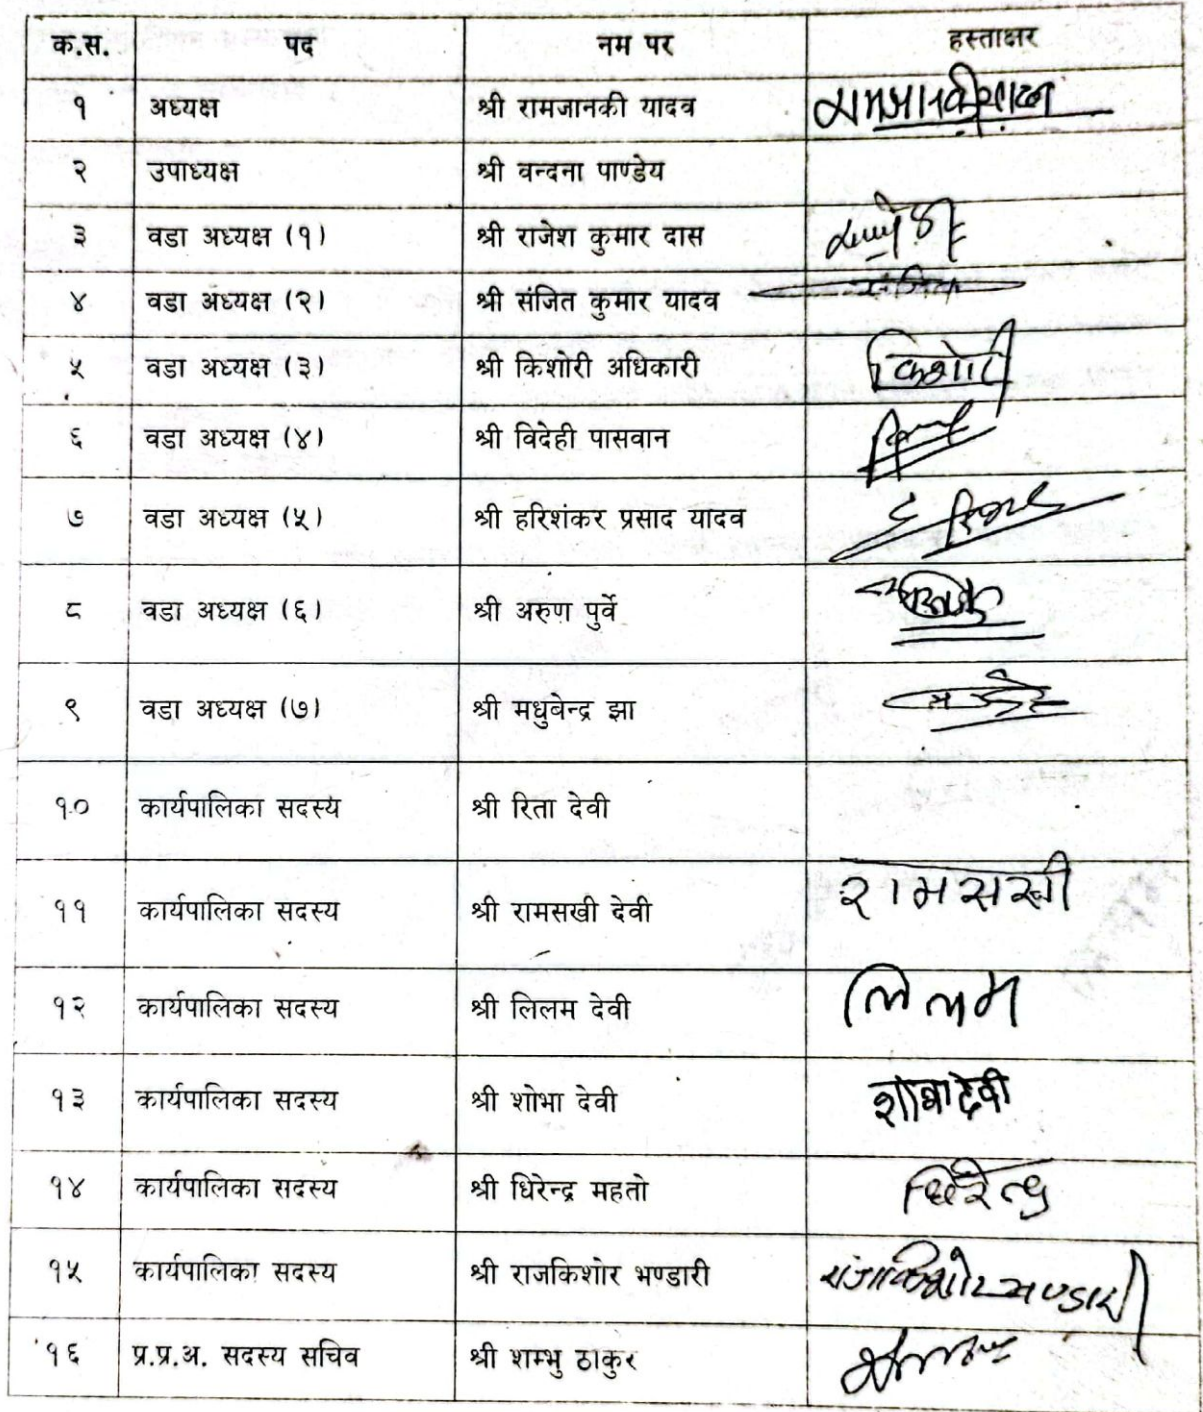 क.स. पद नम पर हस्ताक्षर
१ अध्यक्ष श्री रामजानकी यादव रामजानकी यादव
२ उपाध्यक्ष श्री वन्दना पाण्डेय
३ वडा अध्यक्ष (१) श्री राजेश कुमार दास
४ वडा अध्यक्ष (२) श्री संजित कुमार यादव
५ वडा अध्यक्ष (३) श्री किशोरी अधिकारी किशोरी
६ वडा अध्यक्ष (४) श्री विदेही पासवान
७ वडा अध्यक्ष (५) श्री हरिशंकर प्रसाद यादव
८ वडा अध्यक्ष (६) श्री अरुण पुर्वे
९ वडा अध्यक्ष (७) श्री मधुबेन्द्र झा
१० कार्यपालिका सदस्य श्री रिता देवी
११ कार्यपालिका सदस्य श्री रामसखी देवी रामसखी
१२ कार्यपालिका सदस्य श्री लिलम देवी लिलम
१३ कार्यपालिका सदस्य श्री शोभा देवी शोभा देवी
१४ कार्यपालिका सदस्य श्री धिरेन्द्र महतो धिरेन्द्र
१५ कार्यपालिका सदस्य श्री राजकिशोर भण्डारी राजकिशोर भण्डारी
१६ प्र.प्र.अ. सदस्य सचिव श्री शम्भु ठाकुर